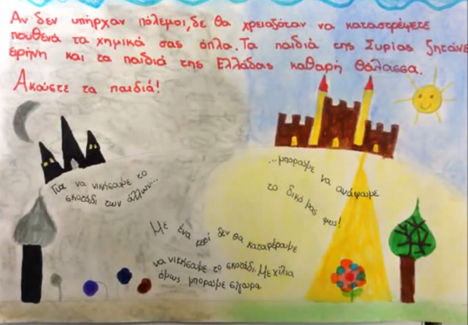 Αν δεν υπήρχαν πόλεμοι, δε θα χρειαζόταν να καταστρέψετε
πουθενά τα χημικά σας όπλα. Τα παιδιά της Συρίας ζητάνε
ειρήνη και τα παιδιά της Ελλάδας καθαρή θάλασσα.
Ακούστε τα παιδιά!
Για να νικήσουμε το
σκοτάδι των άλλων...
...μπορούμε να ανάψουμε
το δικό μας φως!
Με ένα κερί δεν θα καταφέρουμε
να νικήσουμε το σκοτάδι. Με χίλια
όμως μπορούμε σίγουρα